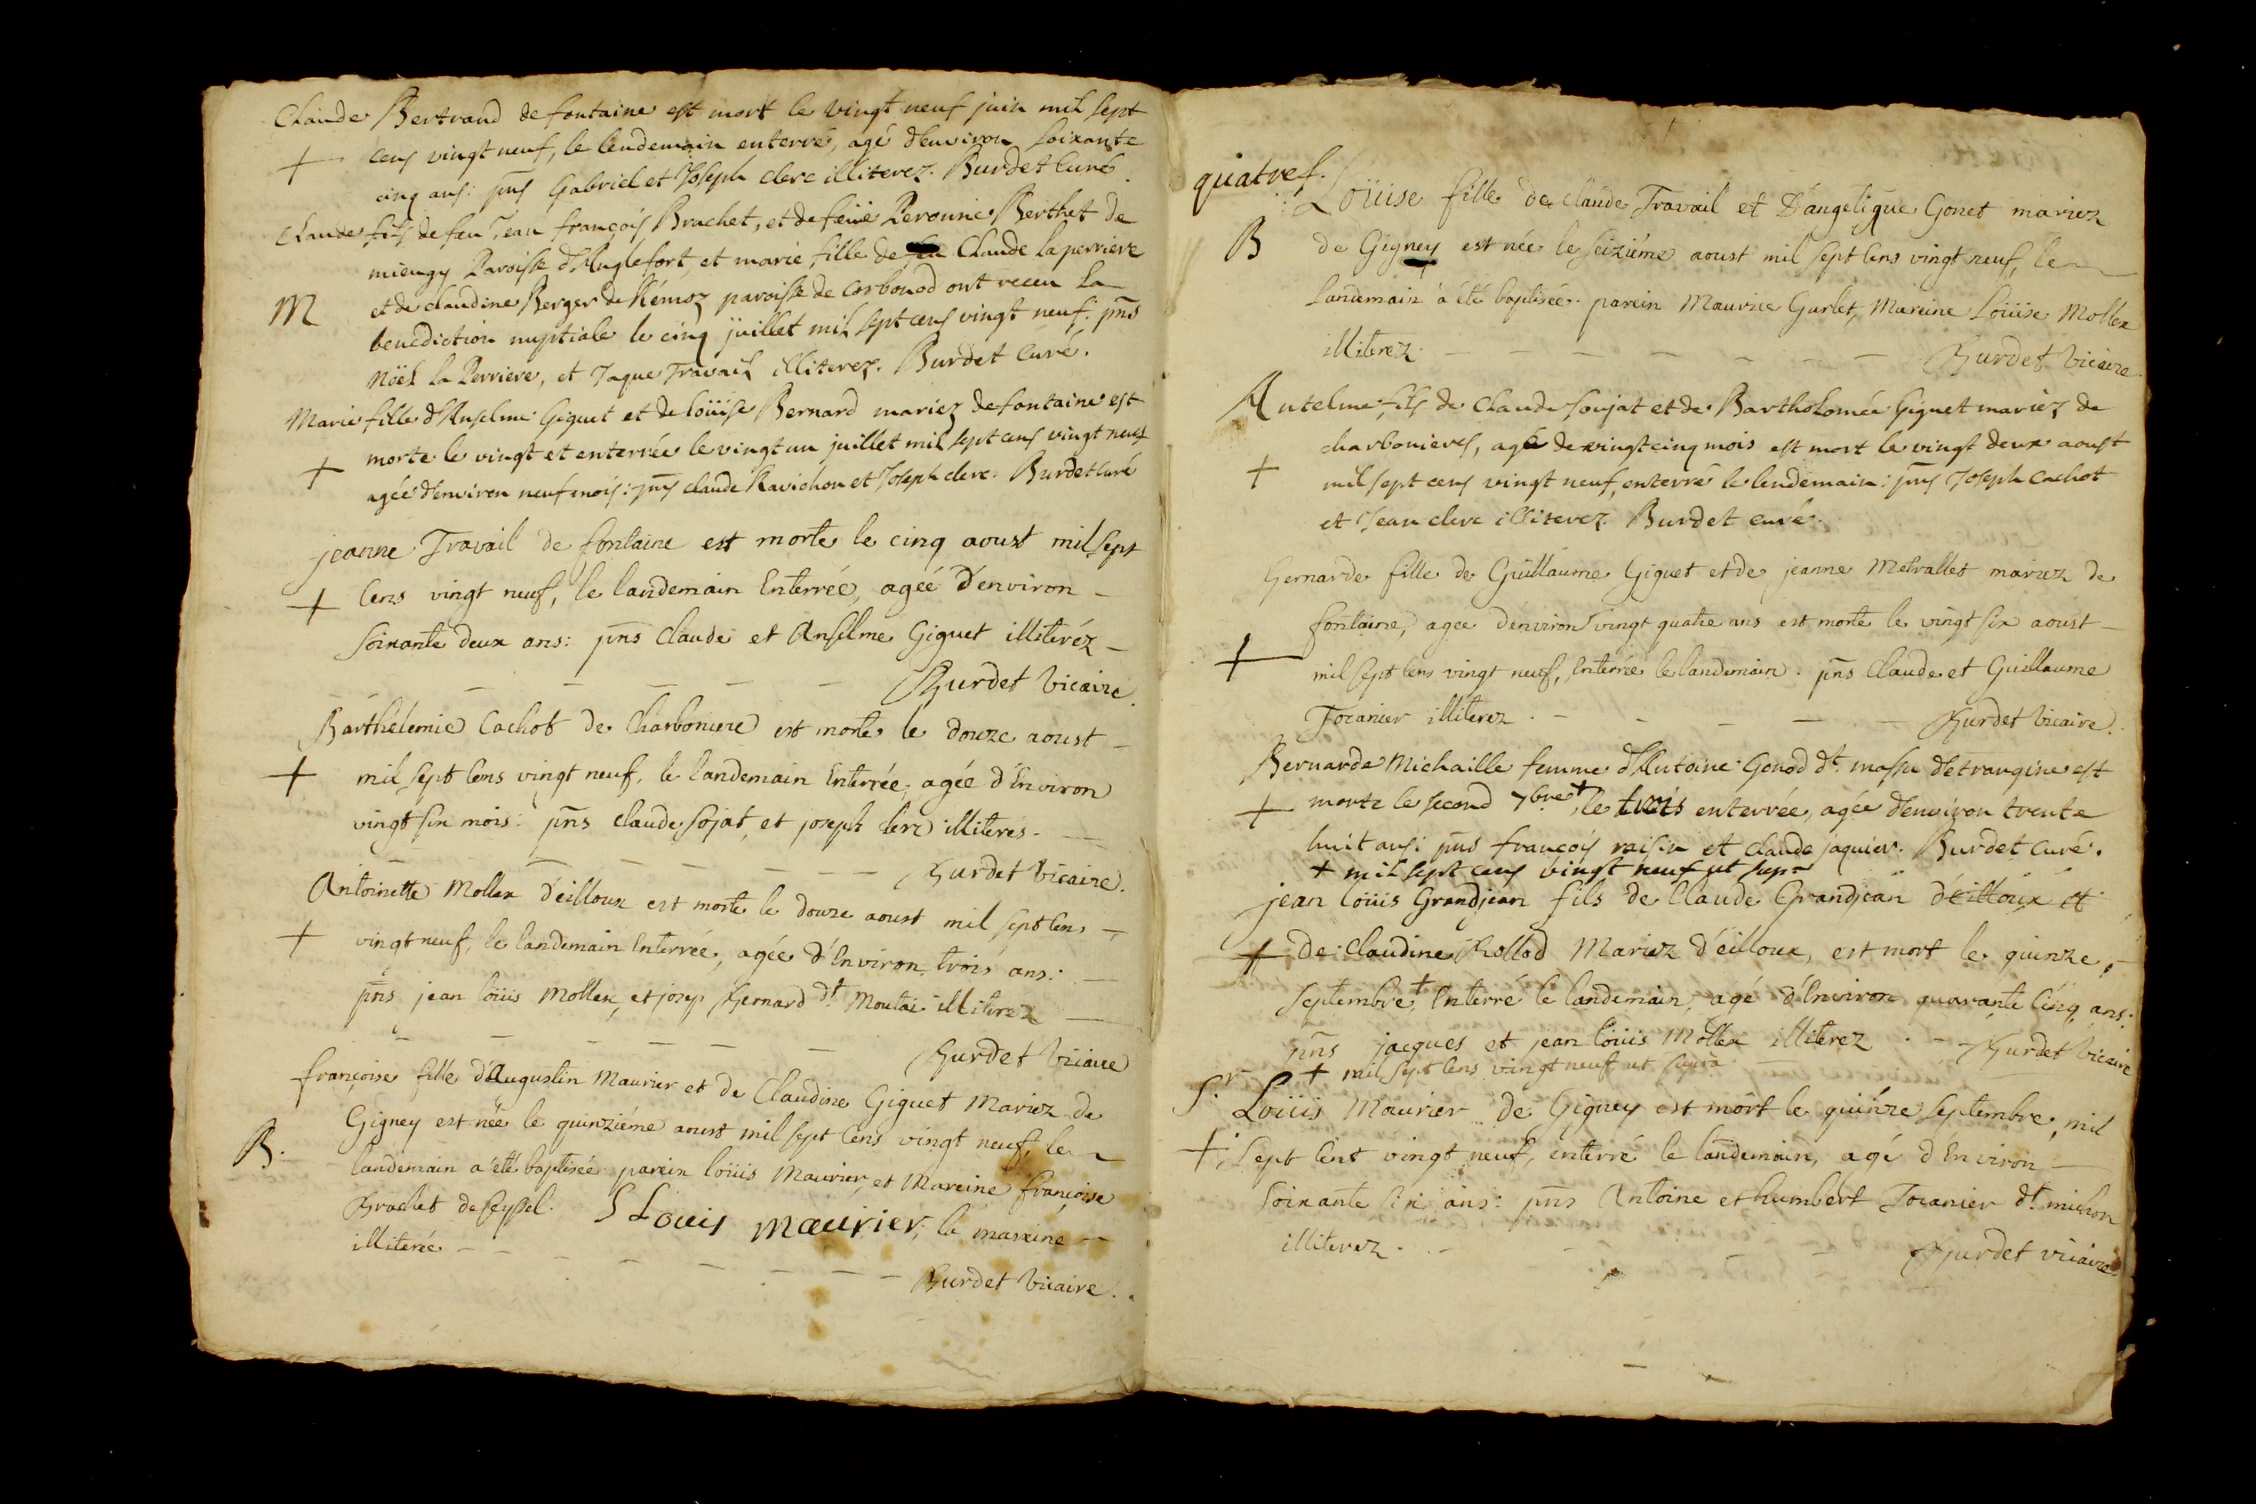 Claude Bertrand de fontaine est mort le vingt neuf juin mil sept
+ cens vingt neuf, le lendemain enterré, agé d'environ soixante
cinq ans: pns Gabriel et Joseph clerc illiterez. Burdet Curé
Claude fils de feu Jean françois Brachet, et de feüe Peronne Berthet de
miengy Paroisse d'Anglefort, et marie fille de Claude la perriere
M et de claudine Berger de Rémoz paroisse de Corbonod ont receu la
benediction nuptiale le cinq juillet mil sept cens vingt neuf: pns
Noël la Perriere, et Jaque Travail illiterez. Burdet Curé.
Marie fille d'Anselme Giguet et de Loüise Bernard mariez de fontaine est
+ morte le vingt et enterrée le vingt un juillet mil sept cens vingt neuf
agée d'environ neuf mois: pns claude Ravichon et Joseph clerc. Burdet curé
jeanne Travail de fontaine est morte le cinq aoust mil sept
+ Cens vingt neuf, le landemain Enterrée, ageé d'environ -
soixante deux ans: pns Claude et Anselme Giguet illiteréz -
Burdet Vicaire.
Barthélemie Cachot de Charboniere est morte le douze aoust -
+ mil sept Cens vingt neuf, le landemain Enterrée, agée d'Environ
vingt six mois: pns Claude Sojat, et joseph Clerc illiterés. -
Burdet Vicaire.
Antoinette Mollex d'eilloux est morte le douze aoust mil sept Cens -
+ vingt neuf, le landemain Enterrée, agée d'Environ trois ans: -
pns jean loüis Mollex, et josep Bernard dt. Moutai illiterez -
Burdet Vicaire
françoise fille d'Augustin Maurier et de Claudine Giguet Mariez de
Gigney est née le quinziéme aoust mil sept Cens vingt neuf, le
B. landemain a été baptisée parein loüis Maurier, et Mareine françoise
Brachet de seyssel. S Louis maurier, la mareine
illiterée - - - Burdet Vicaire.
quatre f.
Loüise fille de Claude Travail et D'angelique Gonet mariez
B de Gigney est née le seiziéme aoust mil sept Cens vingt neuf, le
Landemain a été baptisée. parein Maurice Gurlet, Mareine Loüise Mollex
illiterez. - - - Burdet Vicaire.
Antelme fils de Claude Soujat et de Bartholomée Giguet mariez de
charbonieres, agé de vingt cinq mois est mort le vingt deux aoust
+ mil sept cens vingt neuf, enterré le lendemain: pns Joseph Cachot
et Jean clerc illiterez. Burdet curé.
Bernarde fille de Guillaume Giguet et de jeanne Metrallet mariez de
fontaine, agee d'environ vingt quatre ans est morte le vingt six aoust -
+ mil sept Cens vingt neuf, Enterrée le landemain. pns Claude et Guillaume
Tocanier illiterez. - - - Burdet Vicaire.
Bernarde Michaille femme d'Antoine Genod dt. d'etrangine est
+ morte le second 7bre +, le trois enterrée, agée d'environ trente
huit ans: pns françois raisin et claude jaquier. Burdet Curé.
+ mil sept cens vingt neuf ut supr
jean loüis Grandjean fils de Claude Grandjean d'eilloux et
+ De Claudine Rollod Mariez d'eilloux, est mort le quinze, -
septembre + Enterré le landemain, agé d'Environ quarante Cinq ans:
pns jacques et jean loüis Mollex illiterez. - Burdet Vicaire
+ mil sept Cens vingt neuf ut supra
Sr. Loüis Maurier de Gigney est mort le quinze septembre, mil
+ sept Cent vingt neuf, enterré le landemain, agé d'Environ -
soixante six ans: pns Antoine et humbert Tocanier dt. michon
illiterez. - - - Burdet vicaire